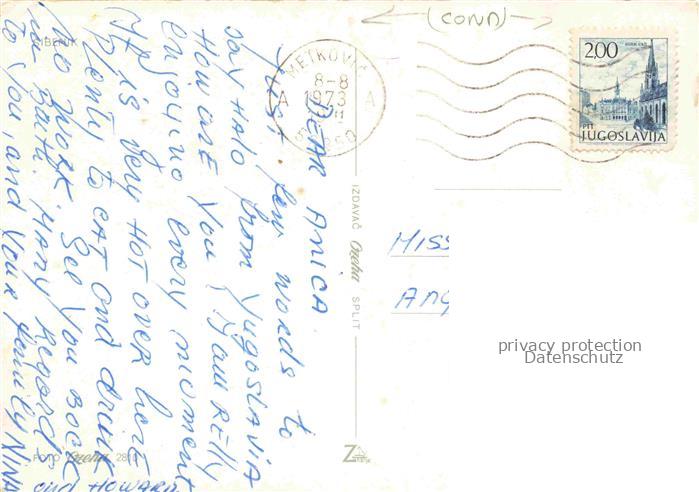 (CONA)
ŠIBENIK
METKOVIĆ
8-8
1973
A A
2,00
PTT
JUGOSLAVIJA
DEAR ANICA.
Just few words to
say HALO from YUGOSLAVIA
How are You I am
enjoying every moment
is very HOT over here
Plenty to EAT and drink
NO WORK. See You BACK
MANY Regards
to You, and Your family NINA
and HOWARD
IZDAVAČ SPLIT
MISS
ANG
privacy protection
Datenschutz
FOTO 2810